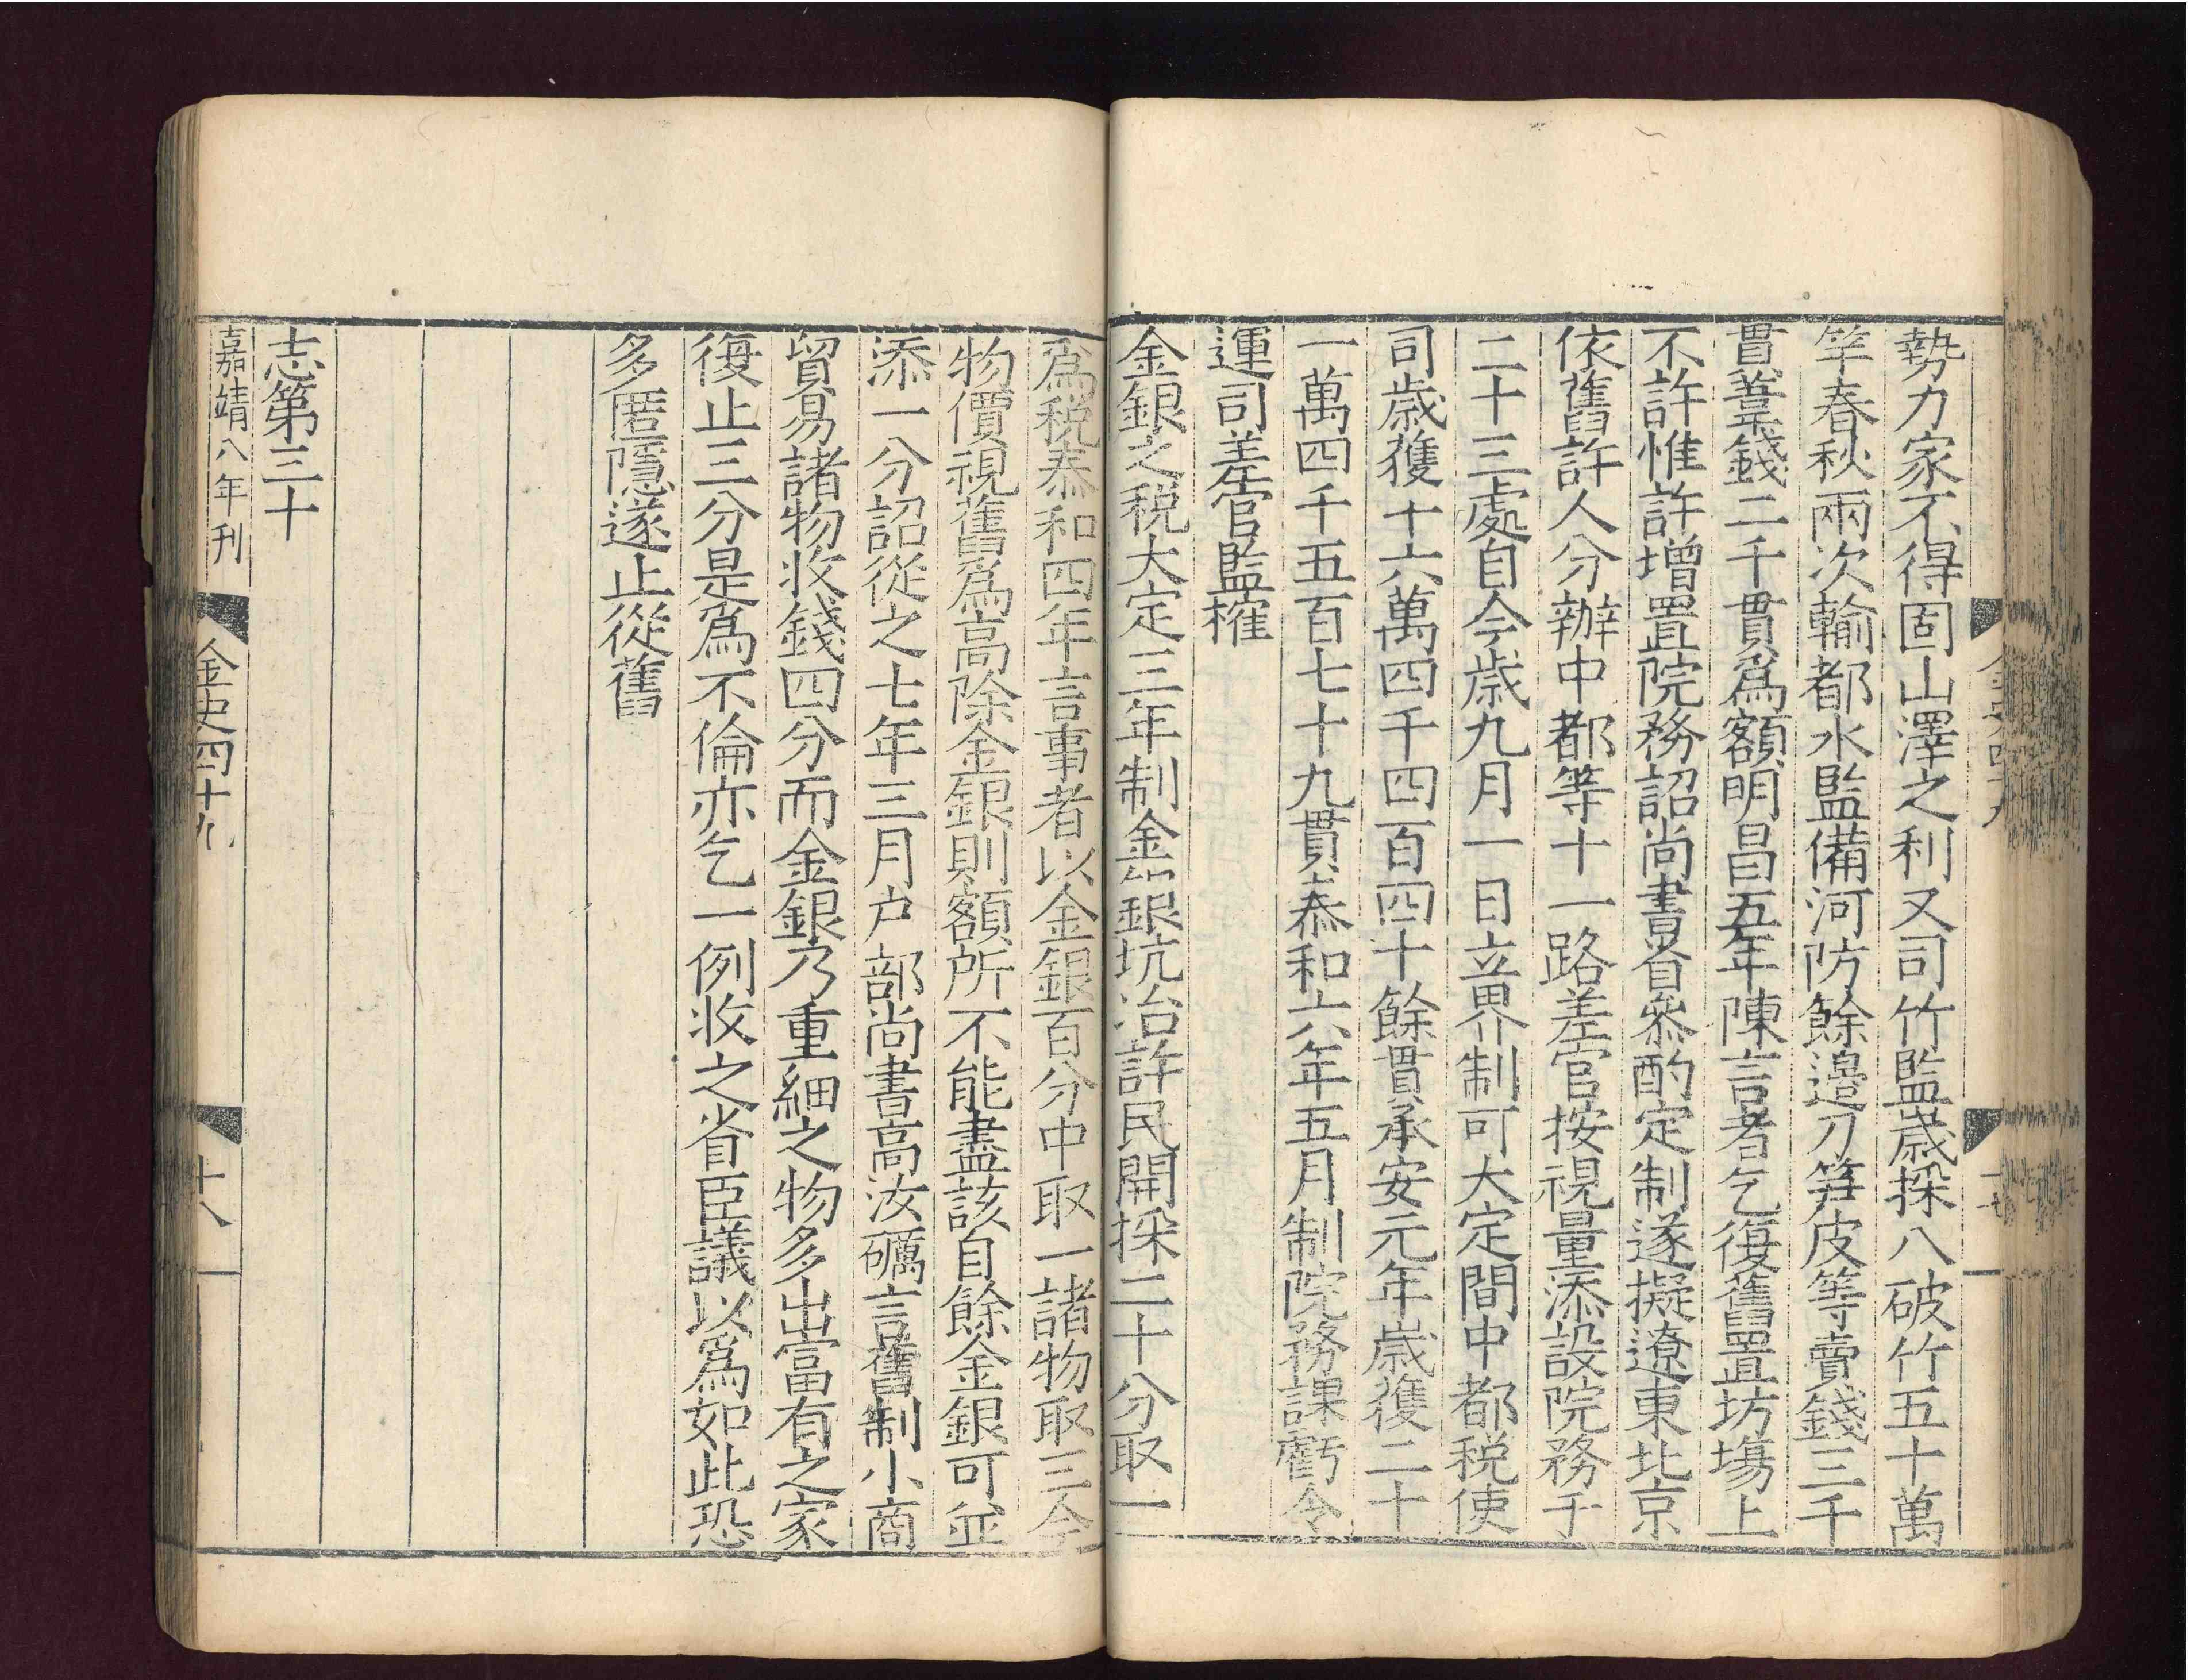 勢力家不得固山澤之利又司竹監歳採八破竹五十萬
竿春秋兩次輸都水監備河防餘邉刀笋皮等賣錢三千
貫葦錢二千貫爲額明昌五年陳言者乞復舊置坊場上
不許惟許増置院務詔尚書省叅酌定制遂擬遼東北京
依舊許人分辦中都等十一路差官按視量添設院務于
二十三處自今歳九月一日立界制可大定間中都税使
司歳獲十六萬四千四百四十餘貫承安元年歳獲二十
一萬四千五百七十九貫泰和六年五月制院務課虧令
運司差官監榷
金銀之税大定三年制金銀坑冶許民開採二十分取一
爲税泰和四年言事者以金銀百分中取一諸物取三今
物價視舊爲高除金銀則額所不能盡該自餘金銀可並
添一分詔從之七年三月户部尚書高汝礪言舊制小商
貿易諸物收錢四分而金銀乃重細之物多出富有之家
復止三分是爲不倫亦乞一例收之省臣議以爲如此恐
多匿隱遂止從舊
志第三十
嘉靖八年刊
金史四十九
十八